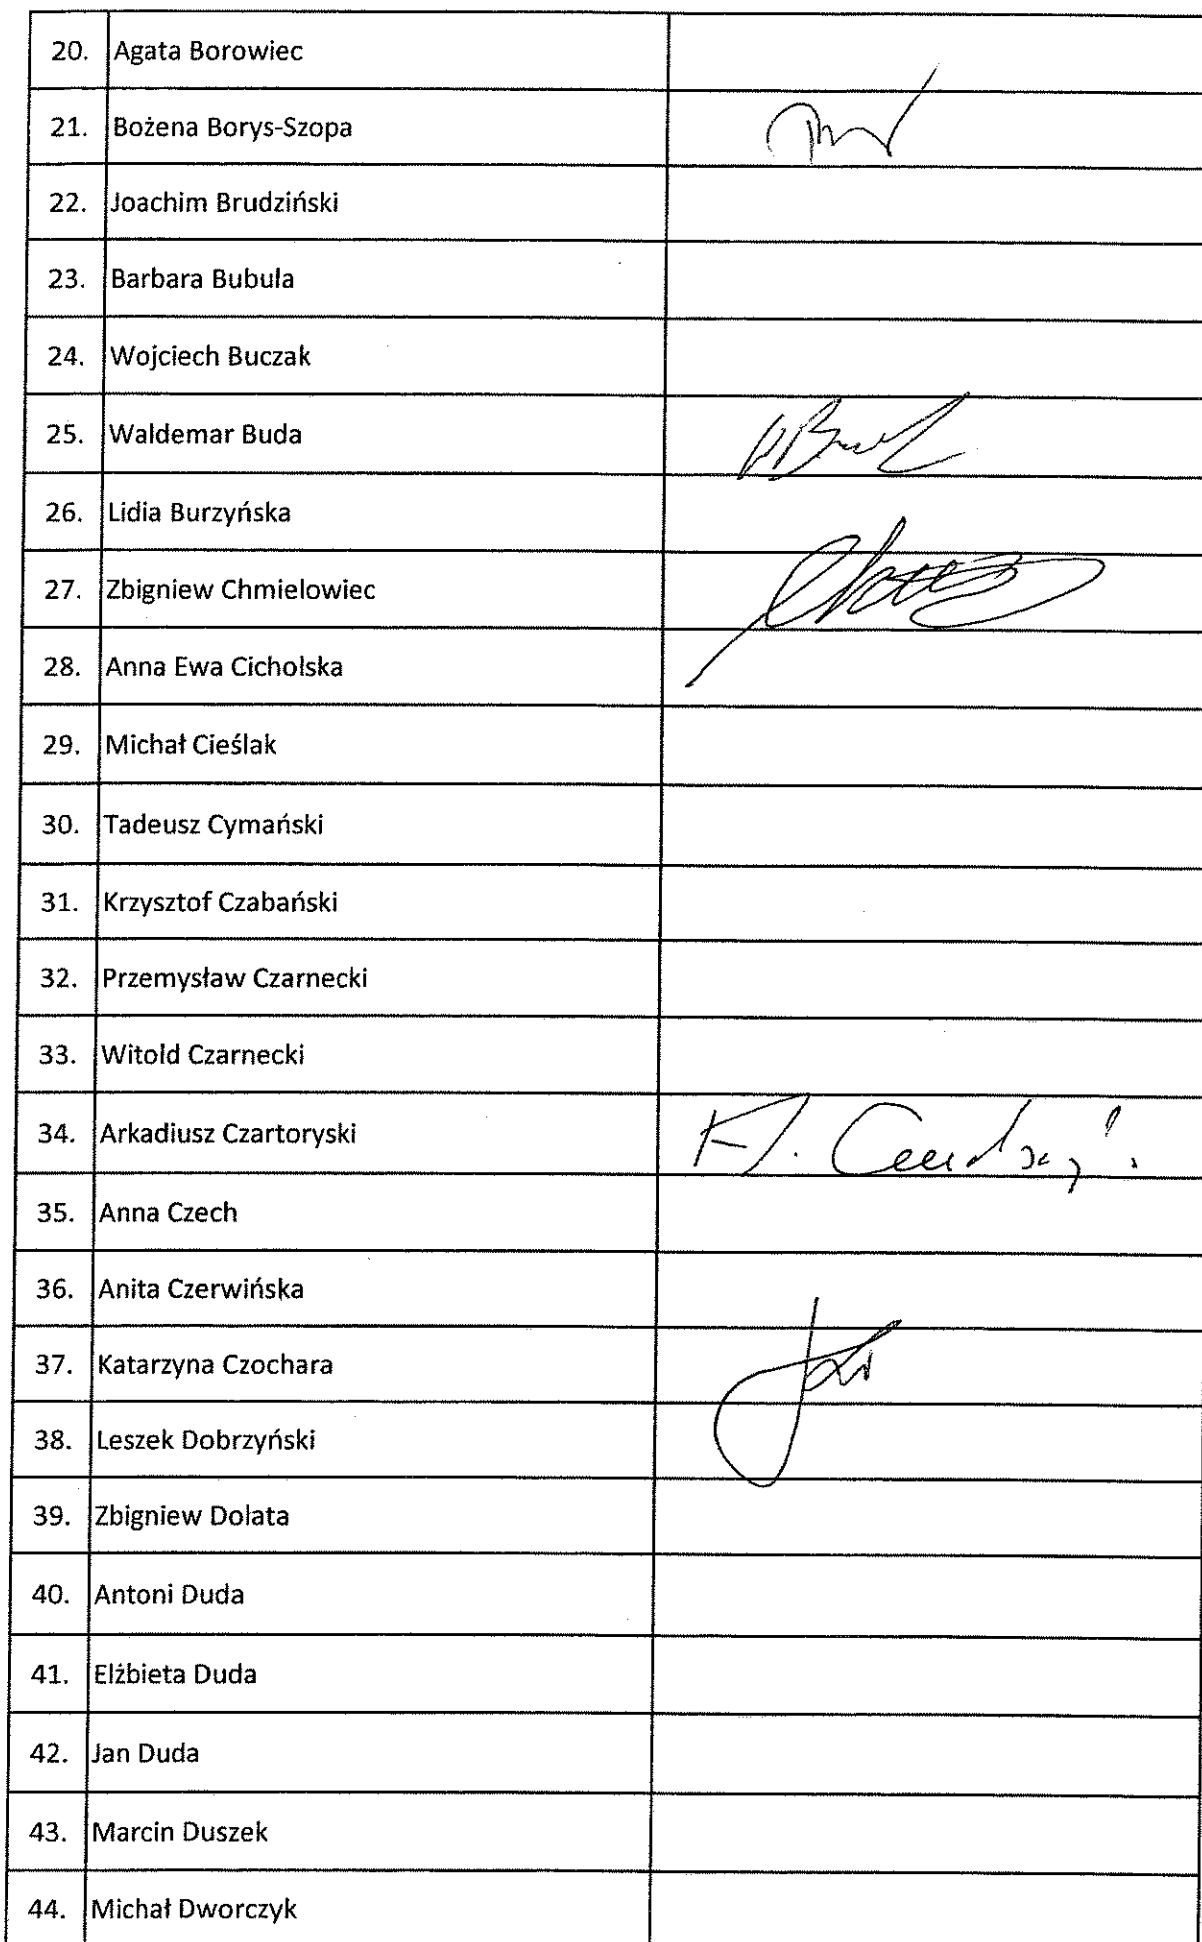 20. Agata Borowiec
21. Bożena Borys-Szopa
22. Joachim Brudziński
23. Barbara Bubula
24. Wojciech Buczak
25. Waldemar Buda
26. Lidia Burzyńska
27. Zbigniew Chmielowiec
28. Anna Ewa Cicholska
29. Michał Cieślak
30. Tadeusz Cymański
31. Krzysztof Czabański
32. Przemysław Czarnecki
33. Witold Czarnecki
34. Arkadiusz Czartoryski
35. Anna Czech
36. Anita Czerwińska
37. Katarzyna Czochara
38. Leszek Dobrzyński
39. Zbigniew Dolata
40. Antoni Duda
41. Elżbieta Duda
42. Jan Duda
43. Marcin Duszek
44. Michał Dworczyk